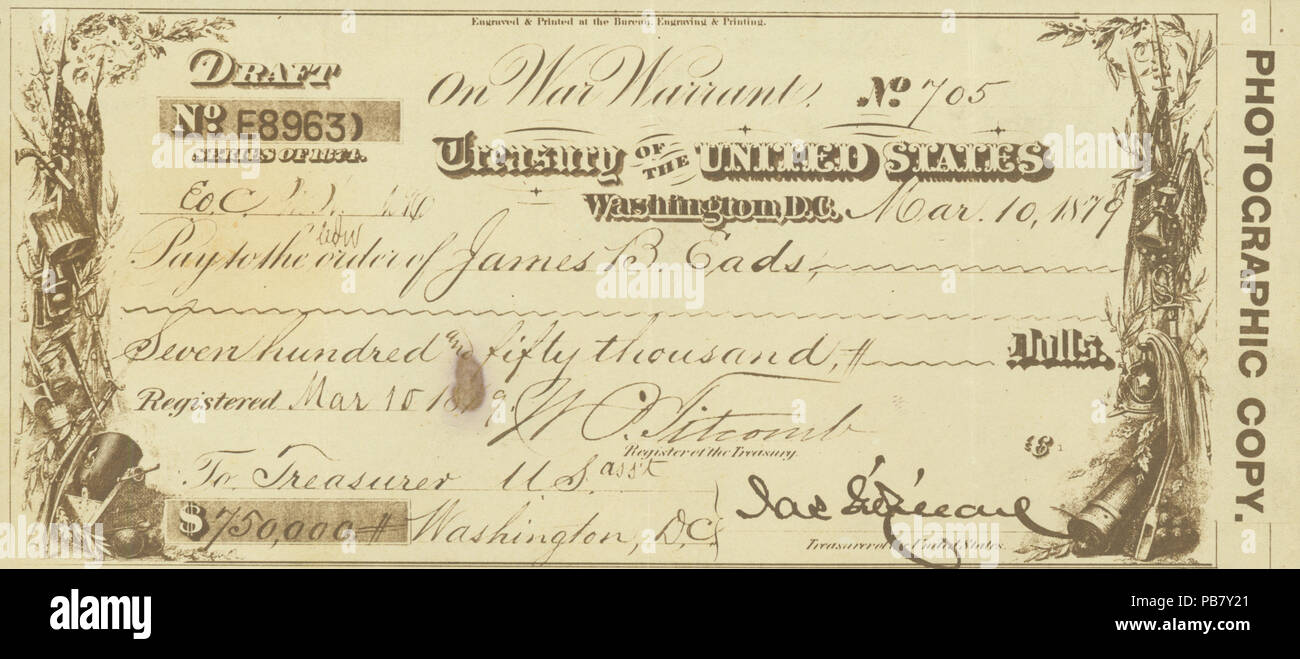 Engraved & Printed at the Bureau, Engraving & Printing.
DRAFT
On War Warrant. No. 705
No. E8963
SERIES OF 1874.
Treasury OF THE UNITED STATES
Washington, D.C. Mar. 10, 1879
Pay to the order of James B. Eads,
Seven hundred and fifty thousand, # Dolls.
Registered Mar 10 1879.
Register of the Treasury.
To Treasurer U.S.
asst
$750,000 # Washington, D.C.
Treasurer of the United States.
PHOTOGRAPHIC COPY.
alamy
alamy
Image ID: PB7Y21
www.alamy.com